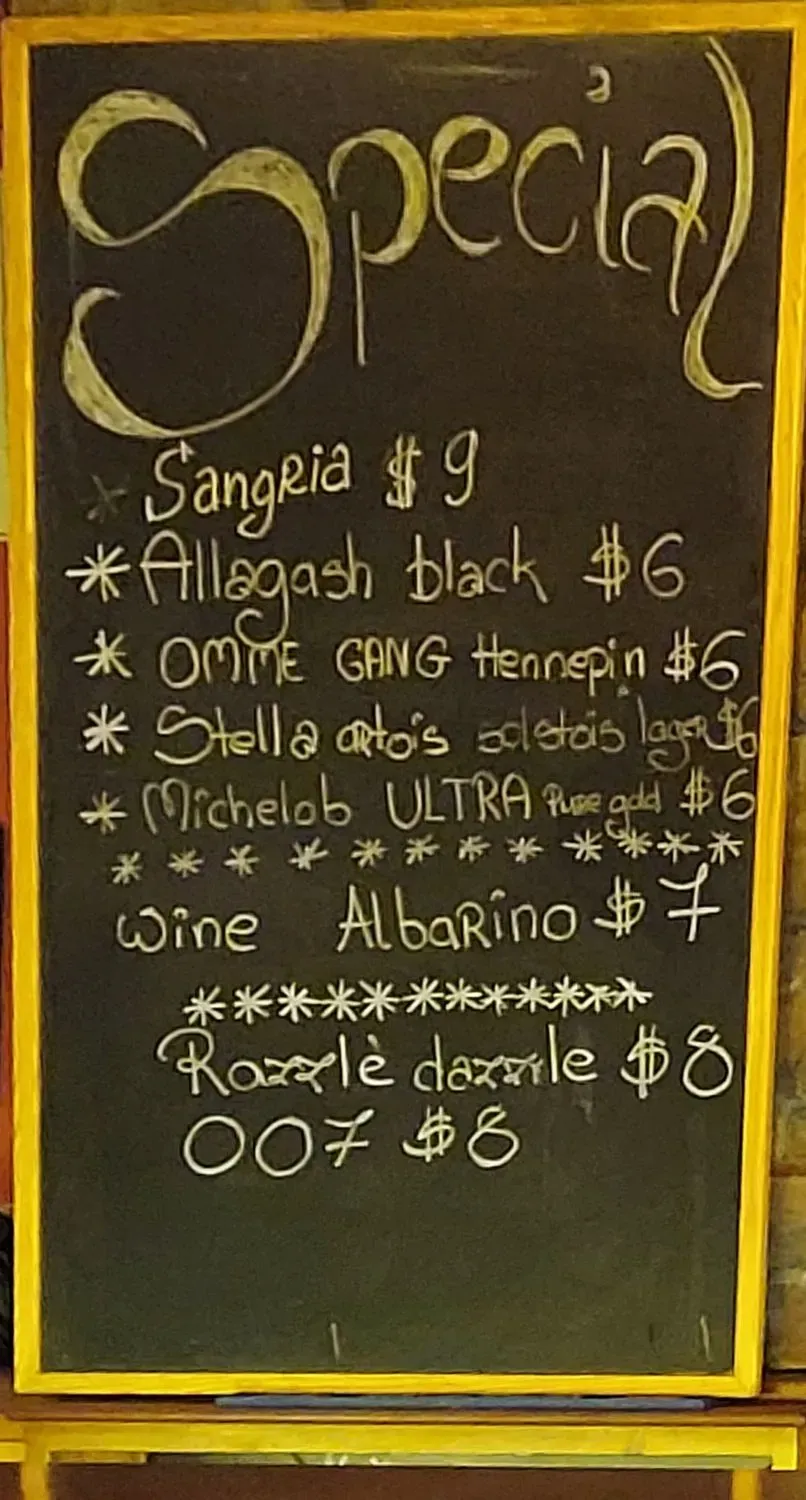 Special
* Sangria $9
* Allagash black $6
* OMME GANG Hennepin $6
* Stella artois solstois lager $6
* Michelob ULTRA Pure gold $6
* * * * * * * * * * * *
Wine Albarino $7
************
Razzlè dazzle $8
007 $8